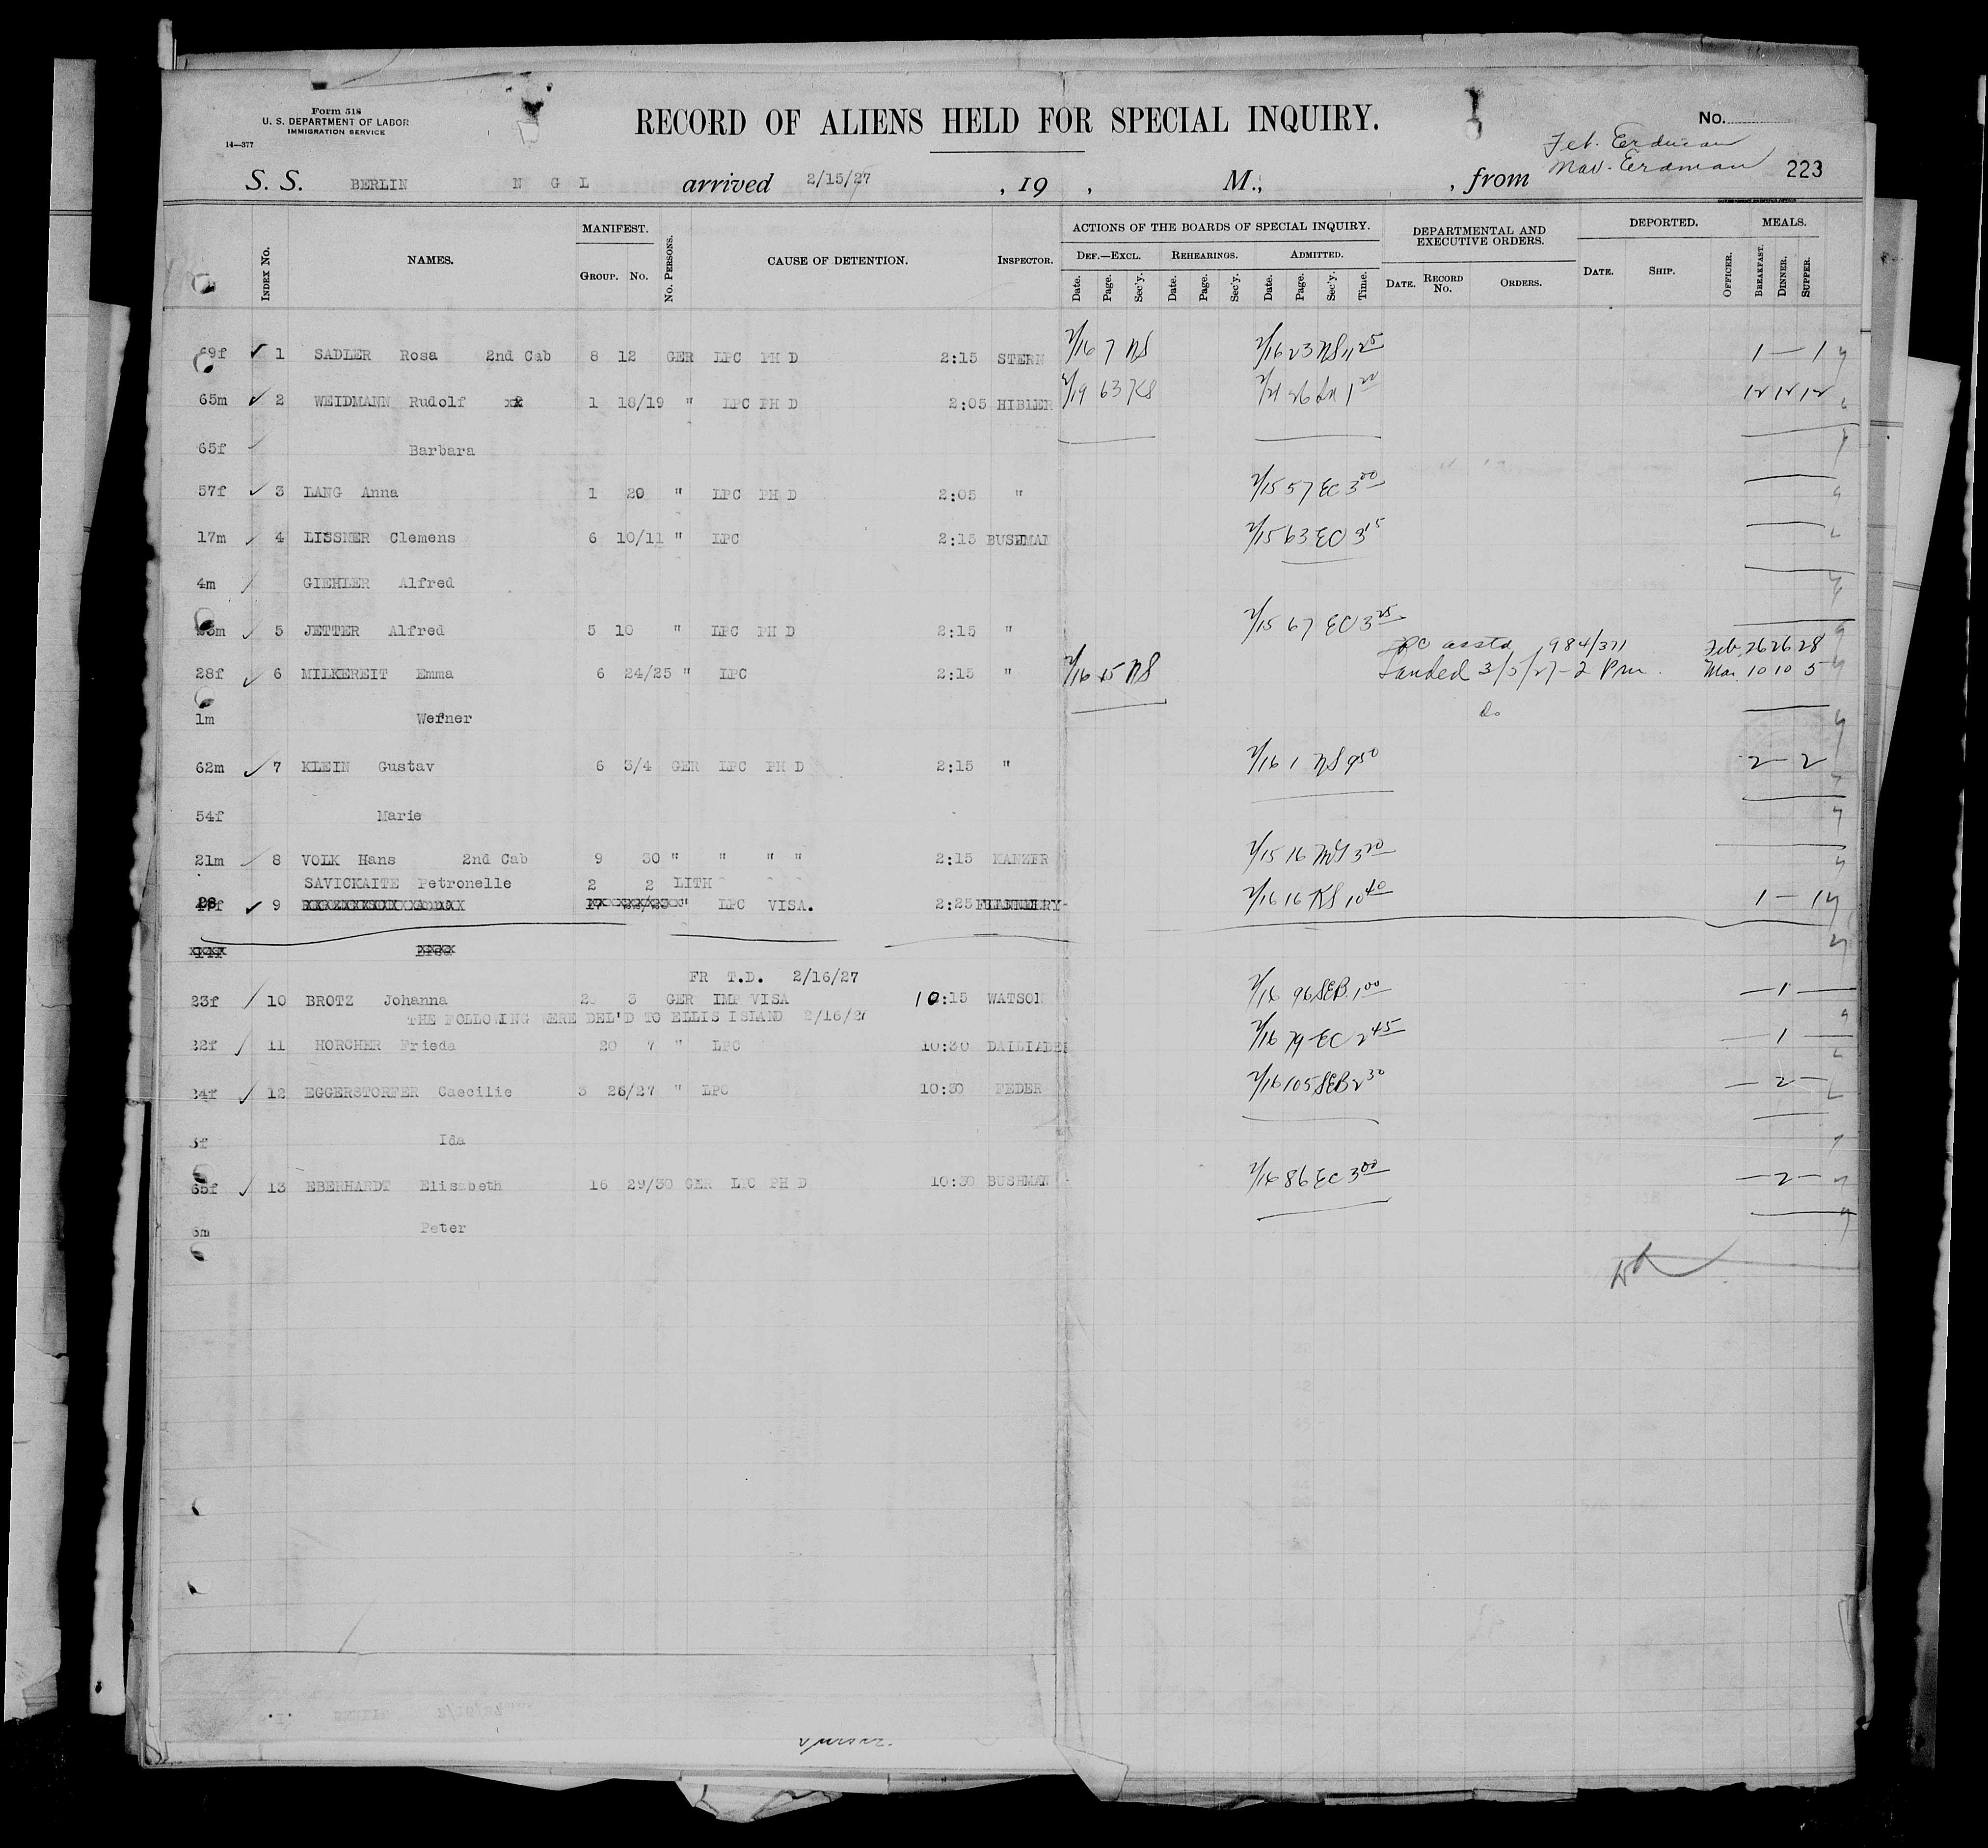 Form 518
U. S. DEPARTMENT OF LABOR
IMMIGRATION SERVICE
14—377
RECORD OF ALIENS HELD FOR SPECIAL INQUIRY.
No.
Feb. Erdman
Mar. Erdman
223
S. S. BERLIN N G L arrived 2/15/27 , 19 , M., , from
Index No. NAMES. MANIFEST. Group. No. No. Persons. CAUSE OF DETENTION. Inspector. ACTIONS OF THE BOARDS OF SPECIAL INQUIRY. Def.—Excl. Date. Page. Sec'y. Rehearings. Date. Page. Sec'y. Admitted. Date. Page. Sec'y. Time. DEPARTMENTAL AND EXECUTIVE ORDERS. Date. Record No. Orders. DEPORTED. Date. Ship. Officer. MEALS. Breakfast. Dinner. Supper.
69f ✓ 1 SADLER Rosa 2nd Cab 8 12 GER LPC PH D 2:15 STERN 2/16 7 NS 2/16 23 NS 11 25 1 — 1
65m ✓ 2 WEIDMANN Rudolf 1 18/19 " LPC PH D 2:05 HIBLER 2/19 63 KS 12 12 12
65f ✓ Barbara
57f ✓ 3 LANG Anna 1 20 " LPC PH D 2:05 " 2/15 57 EC 3 00
17m ✓ 4 LISSNER Clemens 6 10/11 " LPC 2:15 BUSHMAN 2/15 63 EC 3 15
4m ✓ GIEHLER Alfred
✓ 5 JETTER Alfred 5 10 " LPC PH D 2:15 " 2/15 67 EC 3 25
984/371 Feb. 26 26 28
28f ✓ 6 MILKEREIT Emma 6 24/25 " LPC 2:15 " 2/16 15 NS Landed 3/5/27 - 2 Pm. Mar. 10 10 5
1m Werner Do
62m ✓ 7 KLEIN Gustav 6 3/4 GER LPC PH D 2:15 " 2/16 1 NS 9 50 2 — 2
54f Marie
21m ✓ 8 VOLK Hans 2nd Cab 9 30 " " " " 2:15 KANZER 2/15 16 3 20
SAVICKAITE Petronelle 2 2 LITH
28 ✓ 9 " LPC VISA. 2:25 2/16 16 KS 10 40 1 — 1
FR T.D. 2/16/27
23f ✓ 10 BROTZ Johanna 3 GER IMP VISA 10:15 WATSON 2/16 96 SEB 1 00 — 1 —
THE FOLLOWING WERE DEL'D TO ELLIS ISLAND 2/16/27
22f ✓ 11 HORCHER Frieda 20 7 " LPC 10:30 2/16 79 EC 2 45 — 1 —
24f ✓ 12 EGGERSTORFER Caecilie 3 26/27 " LPC 10:30 FEDER 2/16 105 SEB 2 30 — 2 —
3f Ida
65f ✓ 13 EBERHARDT Elisabeth 16 29/30 GER LPC PH D 10:30 BUSHMAN 2/16 86 EC 3 00 — 2 —
Peter